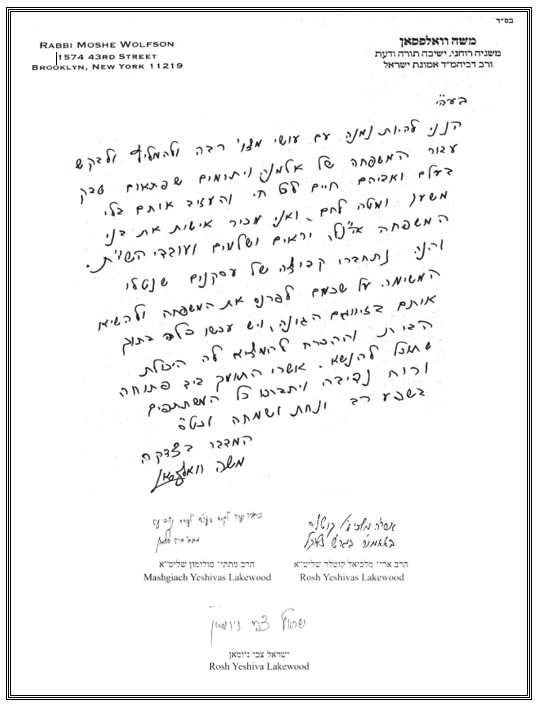 בס"ד
RABBI MOSHE WOLFSON
1574 43RD STREET
BROOKLYN, NEW YORK 11219
משה וואלפסאן
משגיח רוחני, ישיבה תורה ודעת
ורב דביהמ"ד אמונת ישראל
בעה"י
הנני להיות נמנה עם עושי מצוה רבה ולהמליץ ולבקש
עבור המשפחה של אלמנה ויתומים שפתאום שבק
בעלם ואביהם חיים לכל חי והעזיב אותם בלי
משען ומטה לחם. ואני מכיר אישית את בני
המשפחה יראים ושלמים ועובדי השי"ת.
והנה נתחברו קבוצה של עסקנים שנטלו
המשימה על שכמם לפרנס את המשפחה ולהשיא
אותם בזיווגם הגונה, ויש עכשו כלה בתוך
הבית וההכרח להמציא לה היכולת
שתוכל להנשא. אשרי התומך ביד פתוחה
ורוח נדיבה ויתברכו כל המשתתפים
בשפע רב ונחת ושמחה וכט"ס
המדבר בצדקה
משה וואלפסאן
הרב מתתי' סולומון שליט"א
Mashgiach Yeshivas Lakewood
הרב ארי' מלכיאל קוטלר שליט"א
Rosh Yeshivas Lakewood
ישראל צבי ניומאן
ישראל צבי ניומאן
Rosh Yeshiva Lakewood